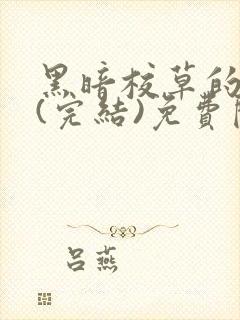 黑暗校草的
(完結)免費
呂燕